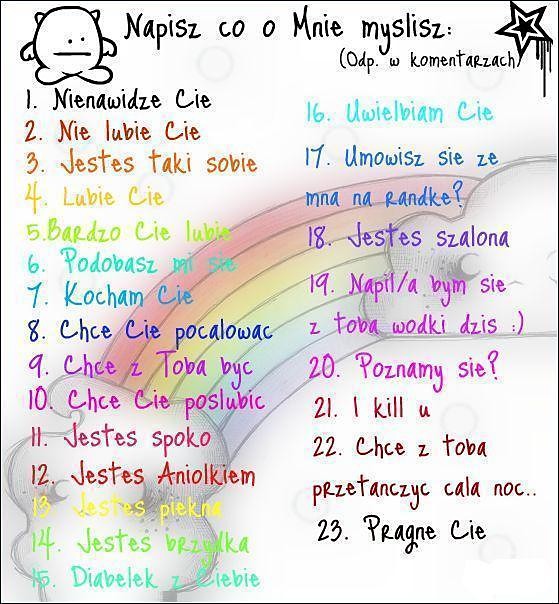 Napisz co o Mnie myslisz:
(Odp. w komentarzach)
1. Nienawidze Cie
2. Nie lubie Cie
3. Jestes taki sobie
4. Lubie Cie
5.Bardzo Cie lubie
6. Podobasz mi sie
7. Kocham Cie
8. Chce Cie pocalowac
9. Chce z Toba byc
10. Chce Cie poslubic
11. Jestes spoko
12. Jestes Aniolkiem
13 Jestes piekna
14. Jestes brzydka
15. Diabelek z Ciebie
16. Uwielbiam Cie
17. Umowisz sie ze
mna na randke?
18. Jestes szalona
19. Napil/a bym sie
z toba wodki dzis :)
20. Poznamy sie?
21. I kill u
22. Chce z toba
przetanczyc cala noc..
23. Pragne Cie